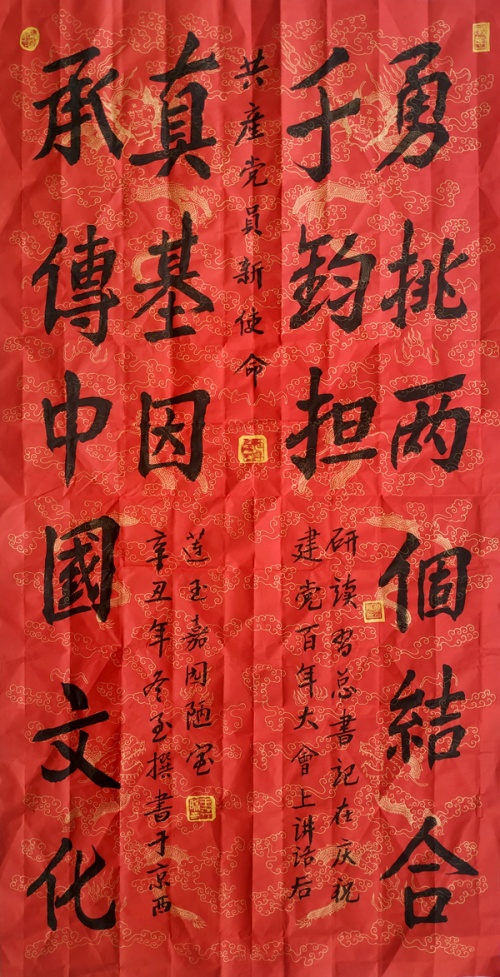 共產党員新使命
勇挑两個結合
千鈞担
研读習总書記在庆祝
建党百年大會上讲話后
承傳中國文化
真基因
辛丑年冬至撰書于京西
莲玉嘉园陋室